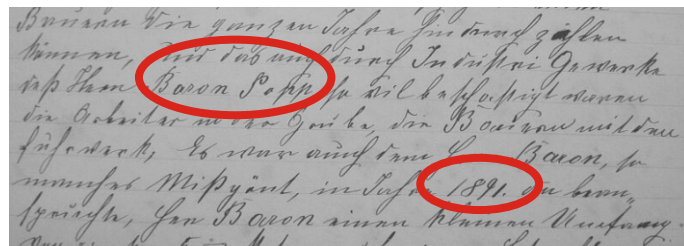 Bauern die ganzen Jahre hindurch zahlen
können, und das auch durch Industri Gewerke
deß Hern Baron Popp so vil beschäftigt waren
die Arbeiter in der Grube, die Bauern mit den
Fuhrwerk, Es war auch dem Baron, so
manches Mißgönt, in Jahre 1891. da bean„
spruchte, Her Baron einen kleinen Umfang